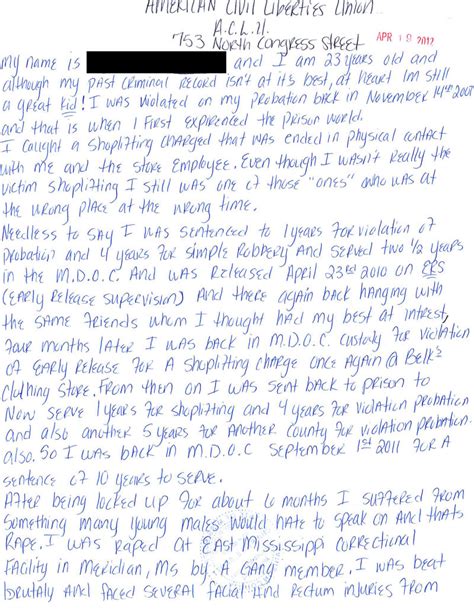 AMERICAN CIVIL LIBERTIES UNION
A.C.L.U.
753 NORTH CONGRESS STREET
APR 18 2012
My name is and I am 23 years old and
although my past criminal record isn't at it's best, at heart Im still
a great kid! I was violated on my probation back in November 14th 2007
and that is when I first expirenced the prison world.
I caught a shoplifting charged that was ended in physical contact
with me and the store employee. Even though I wasn't really the
victim shoplifting I still was one of those "ones" who was at
the wrong place at the wrong time.
Needless to say I was sentenced to 1 years for violation of
probation and 4 years for simple robbery and served two 1/2 years
in the M.D.O.C. and was released April 23rd 2010 on ERS
(Early Release Supervision) and there again back hanging with
the same friends whom I thought had my best at intrest,
four months later I was back in M.D.O.C. custody for violation
of early release for a shoplifting charge once again @ Belk's
clothing store. From then on I was sent back to prison to
now serve 1 years for shoplifting and 4 years for violation probation
and also another 5 years for another county for violation probation
also. So I was back in M.D.O.C September 1st 2011 for a
sentence of 10 years to serve.
After being locked up for about 6 months I suffered from
something many young males would hate to speak on and thats
Rape. I was raped at East Mississippi Correctional
Facility in Meridian, Ms by a gang member. I was beat
brutaly and faced several facial and rectum injuries from